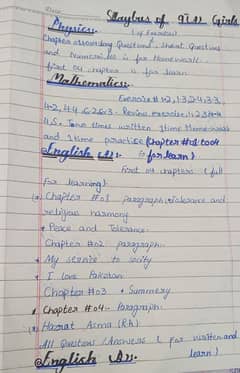 Syllabus of 9th Girls
Physics:
(of Exercise)
Chapter # secondary Questions, Short Questions
and Numericals is for Homework.
first 04 chapters is for learn
Mathematics:
Exercise# 1.2, 1.3, 2.4, 3.3,
4.2, 4.4, 6.2 6.3. Review exercise 1,2,3 4
4.5. Two times written 1time Homework
and 1time practise (Chapter #01 to 04
English A: is for learn)
First 04 chapters (full
for learning)
(*) Chapter #01 paragraph: tolerance and
religious harmony
* Peace and Tolerance.
Chapter #02 paragraph.
* My service to society
* I love Pakistan
Chapter #03 * Summery
* Chapter #04.. Paragraph.
(*) Hazrat Asma (Rh)
All Questions / Answers (for written and
learn)
English B:.